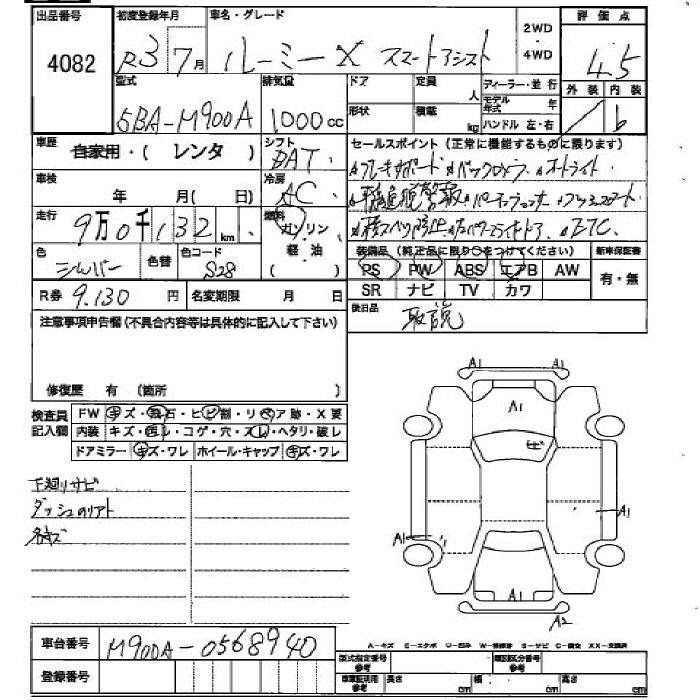 出品番号 初度登録年月 車名・グレード 2WD ・ 4WD 評価点
4082 R3 7月 ルーミー X スマートアシスト 4.5
型式 排気量 ドア 定員 人 ディーラー・並行 外装 内装
5BA-M900A 1000cc 形状 積載 kg モデル年式 年 ハンドル 左・右 b
車歴 自家用・( レンタ ) シフト DAT セールスポイント(正常に機能するものに限ります)
車検 年 月( 日) 冷房 AC
ブレーキサポート バックカメラ オートライト
走行 9万0千132km 燃料 ガソリン・軽油
ETC
色 シルバー 色替 色コード S28 装備品(純正品に限り○をつけてください) 新車保証書
PS PW ABS エアB AW 有・無
R券 9.130円 名変期限 月 日 SR ナビ TV カワ
注意事項申告欄(不具合内容等は具体的に記入して下さい) 後日品 取説
修復歴 有 (箇所 )
検査員記入欄 FW キズ・飛石・ヒビ割・リペア跡・X要
内装 キズ・汚レ・コゲ・穴・スレ・ヘタリ・破レ
ドアミラー キズ・ワレ ホイール・キャップ キズ・ワレ
A1 A1
A1
下廻りサビ
A1
A1
A1
A2
車台番号 M900A-0568940
登録番号
A-キズ ミ-エクボ U-凹み W-補修跡 S-サビ C-腐食 XX-交換済
型式指定番号 参考 類別区分番号 参考
車庫証明用 参考 長さ cm 幅 cm 高さ cm